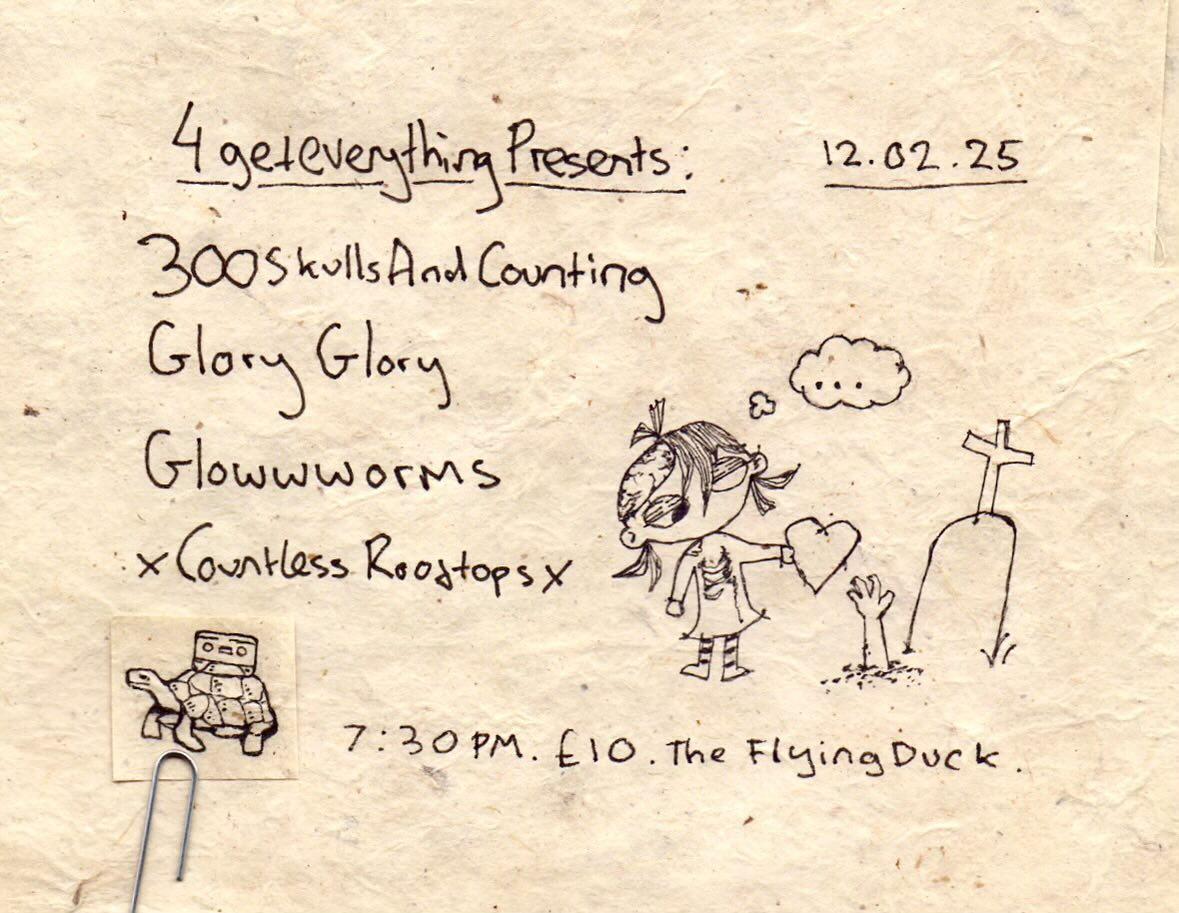 4geteverything Presents:
12.02.25
300SkullsAndCounting
Glory Glory
Glowwworms
x Countless Rooftops x
...
7:30PM. £10. The Flying Duck.